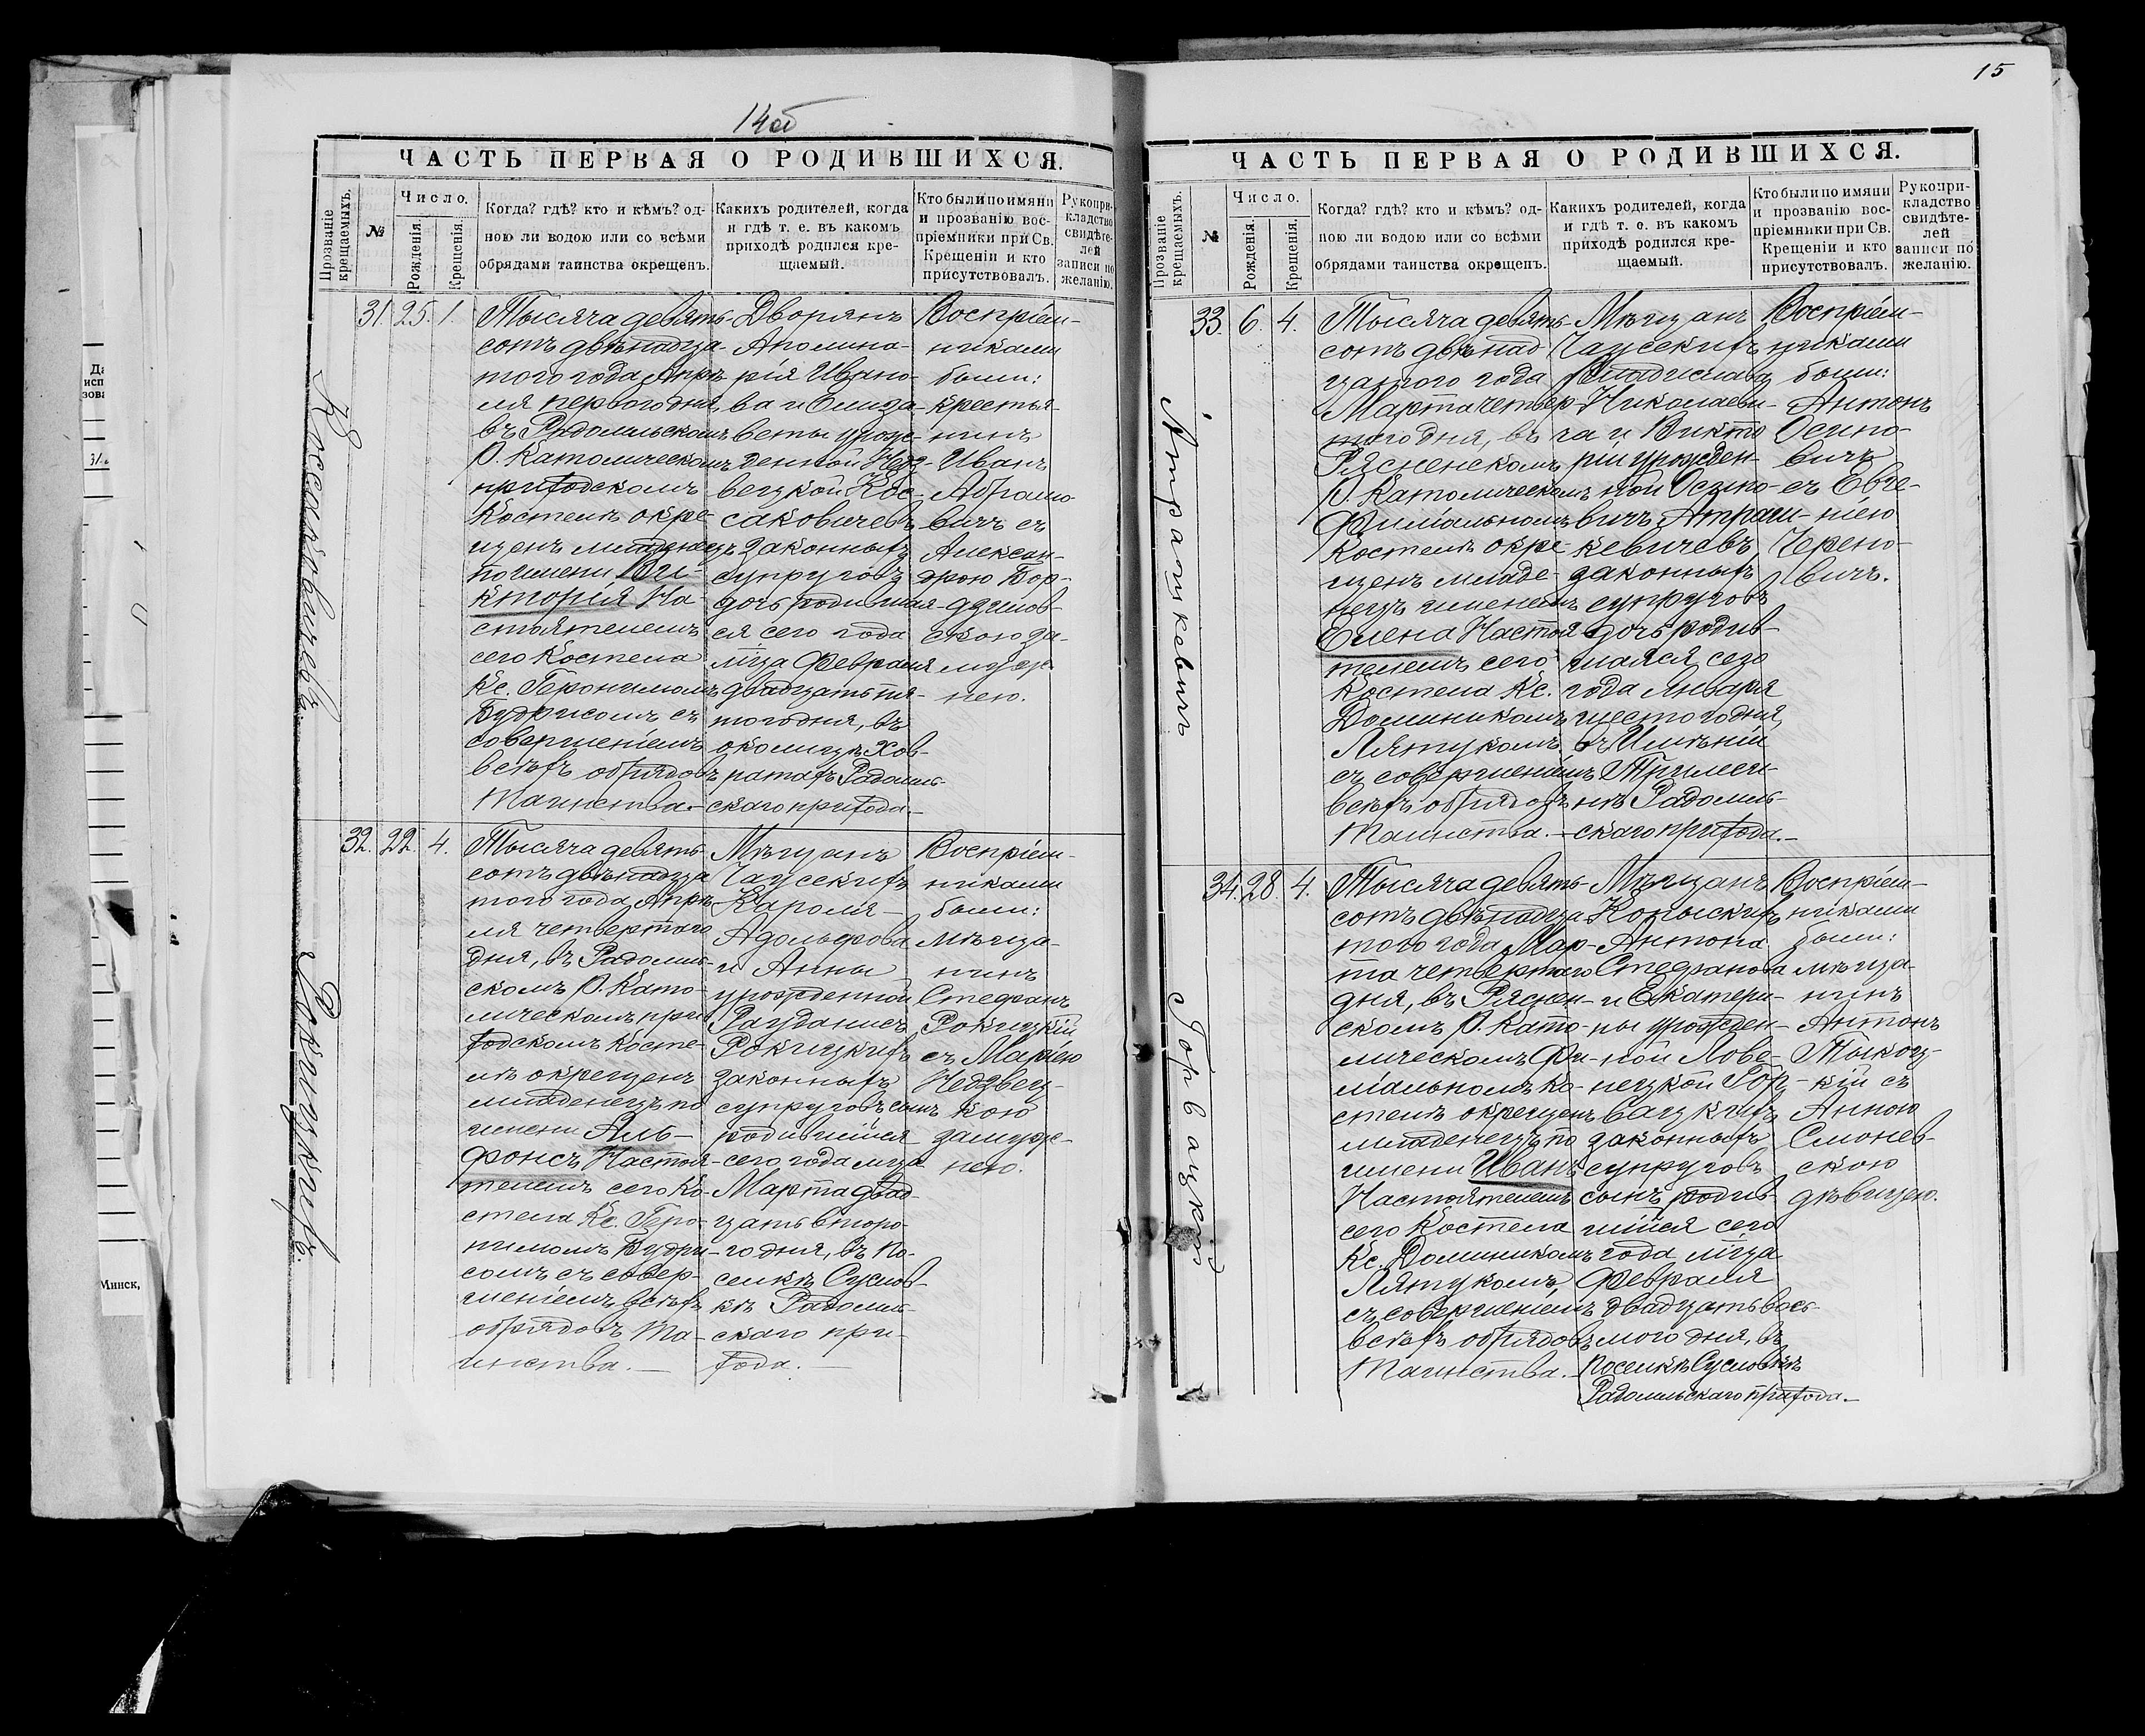 14об
ЧАСТЬ ПЕРВАЯ О РОДИВШИХСЯ.
Прозваніе крещаемыхъ.
№
Число.
Рожденія.
Крещенія.
Когда? гдѣ? кто и кѣмъ? од-
ною ли водою или со всѣми
обрядами таинства окрещенъ.
Какихъ родителей, когда
и гдѣ т. е. въ какомъ
приходѣ родился кре-
щаемый.
Кто были по имяни
и прозванію вос-
пріемники при Св.
Крещеніи и кто
присутствовалъ.
Рукопри-
кладство
свидѣте-
лей
записи по
желанію.
Коссаковичевъ.
31. 25. 1.
Тысяча девять-
сотъ двѣнадца-
того года Апрѣ
ля перваго дня,
въ Радомльскомъ
Р. Католическомъ
приходскомъ
Костелѣ окре-
щенъ младенецъ
по имени Ви-
кторія На-
стоятелемъ
сего Костела
Кс. Геронимомъ
Будрисомъ съ
совершеніемъ
всѣхъ обрядовъ
Таинства.-
Дворянъ
Аполина-
рія Ивано-
ва и Елиза-
веты урож-
денной Недз-
вецкой Кос-
саковичевъ
законныхъ
супруговъ
дочь родивша-
яся сего года
м̃ца Февраля
двадцать пя-
того дня, въ
околицѣ Хов-
ратахъ Радомль-
скаго прихода.-
Воспріем-
никами
были:
крестья-
нинъ
Иванъ
Абрамо-
вичъ съ
Алексан-
дрою Бор-
дзилов-
скою за-
муж-
нею.
Рокицкихъ.
32. 22. 4.
Тысяча девять-
сотъ двѣнадца
того года Апрѣ
ля четвертаго
дня, въ Радомль-
скомъ Р. Като-
лическомъ при
ходскомъ Косте-
лѣ окрещенъ
младенецъ по
имени Аль-
фонсъ Настоя-
телемъ сего Ко-
стела Кс. Геро-
нимомъ Будри-
сомъ съ совер-
шеніемъ всѣхъ
обрядовъ Та-
инства.-
Мѣщанъ
Чаусскихъ
Кароля
Адольфова
и Анны
урожденной
Рокицкихъ
законныхъ
супруговъ сынъ
родившійся
сего года м̃ца
Марта двад-
цать второ-
го дня, въ по-
селкѣ Суслов-
кѣ Радомль-
скаго при-
хода.-
Воспріем-
никами
были:
мѣща-
нинъ
Стефанъ
Рокицкій
съ Маріею
Недзвец-
кою
замуж-
нею.
15
ЧАСТЬ ПЕРВАЯ О РОДИВШИХСЯ.
Прозваніе крещаемыхъ.
№
Число.
Рожденія.
Крещенія.
Когда? гдѣ? кто и кѣмъ? од-
ною ли водою или со всѣми
обрядами таинства окрещенъ.
Какихъ родителей, когда
и гдѣ т. е. въ какомъ
приходѣ родился кре-
щаемый.
Кто были по имяни
и прозванію вос-
пріемники при Св.
Крещеніи и кто
присутствовалъ.
Рукопри-
кладство
свидѣте-
лей
записи по
желанію.
Атрашкевичъ
33. 6. 4.
Тысяча девять-
сотъ двѣнад-
цатого года
Марта четвер-
таго дня, въ
Рясненскомъ
Р. Католическомъ
Филіальномъ
Костелѣ окре-
щенъ младе-
нецъ именемъ
Елена Настоя-
телемъ сего
Костела Кс.
Доминикомъ
Лятукомъ
съ совершеніемъ
всѣхъ обрядовъ
Таинства.-
Мѣщанъ
Чаусскихъ
Владислава
Николаеви-
ча и Викто
ріи урожден-
ной Осипо-
вичъ Атраш-
кевичевъ
законныхъ
супруговъ
дочь родив-
шаяся сего
года Января
шестого дня,
въ Имѣніи
Радомль-
скаго прихода.-
Воспріем-
никами
были:
Антонъ
Осипо-
вичъ
съ Евге-
ніею
Черено-
вичъ.
Горвацкій
34. 28. 4.
Тысяча девять-
сотъ двѣнадца
того года Мар-
та четвертаго
дня, въ Ряснен-
скомъ Р. Като-
лическомъ Фи-
ліальномъ Ко-
стелѣ окрещенъ
младенецъ по
имени Иванъ
Настоятелемъ
сего Костела
Кс. Доминикомъ
Лятукомъ,
съ совершеніемъ
всѣхъ обрядовъ
Таинства.-
Мѣщанъ
Копыскихъ
Антона
Стефанова
и Екатери-
ны урожден-
ной Лове-
нецкой Гор-
вацкихъ
законныхъ
супруговъ
сынъ родив-
шійся сего
года м̃ца
Февраля
двадцать вось-
мого дня, въ
поселкѣ Сусловкѣ
Радомльскаго прихода.-
Воспріем-
никами
были:
мѣща-
нинъ
Антонъ
Тыкоц-
кій съ
Анною
Смонев-
скою
дѣвицею.
Минск,